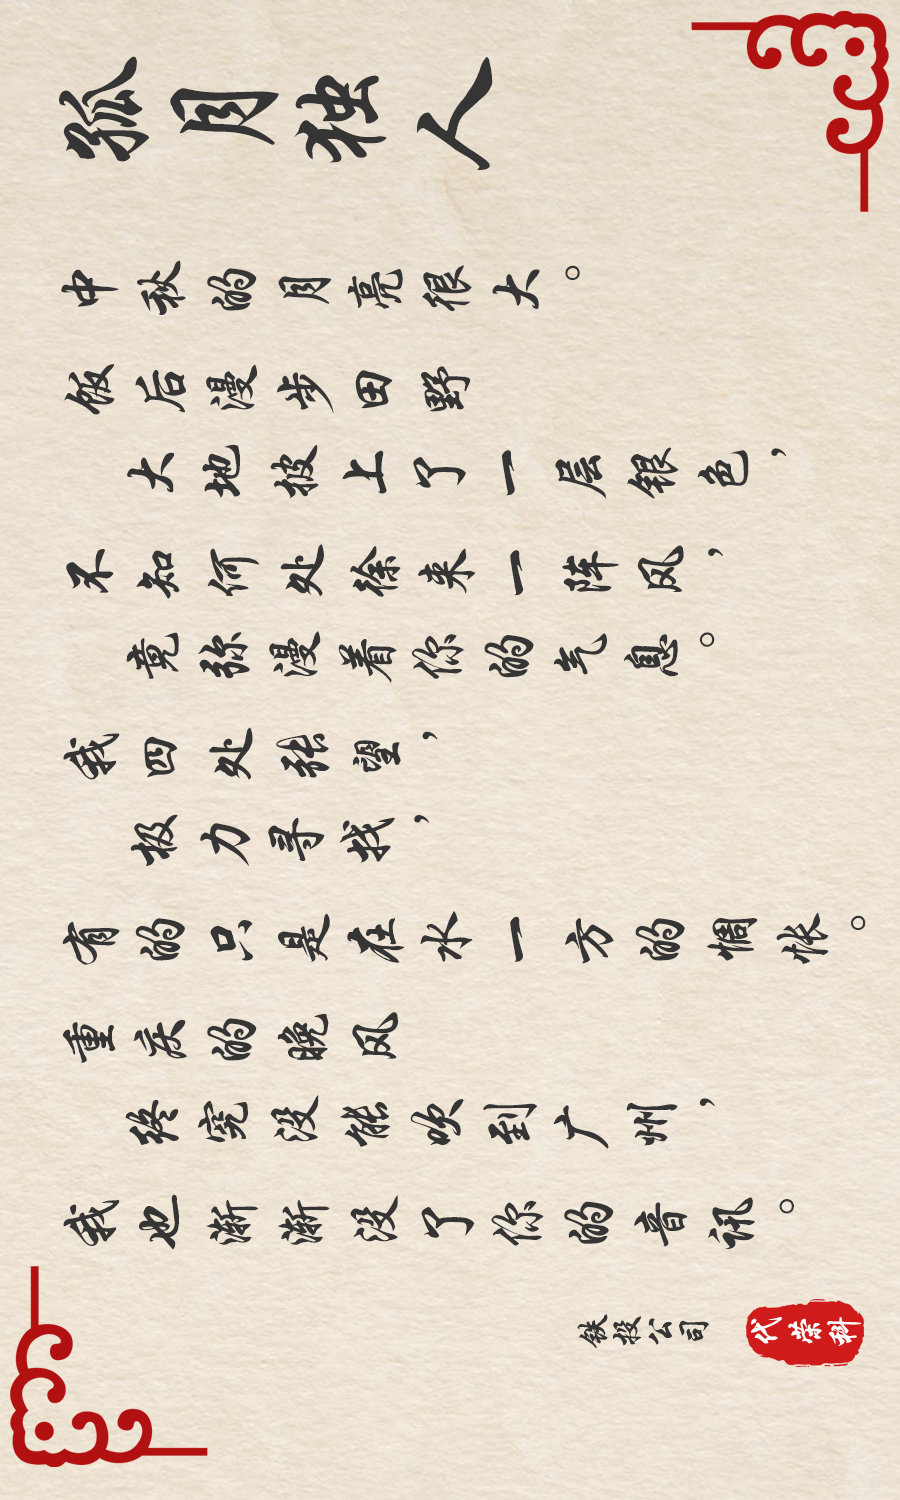 孤月独人
中秋的月亮很大。
饭后漫步田野
大地披上了一层银色，
不知何处徐来一阵风，
竟弥漫着你的气息。
我四处张望，
极力寻找，
有的只是在水一方的惆怅。
重庆的晚风
终究没能吹到广州，
我也渐渐没了你的音讯。
铁投公司
代荣科